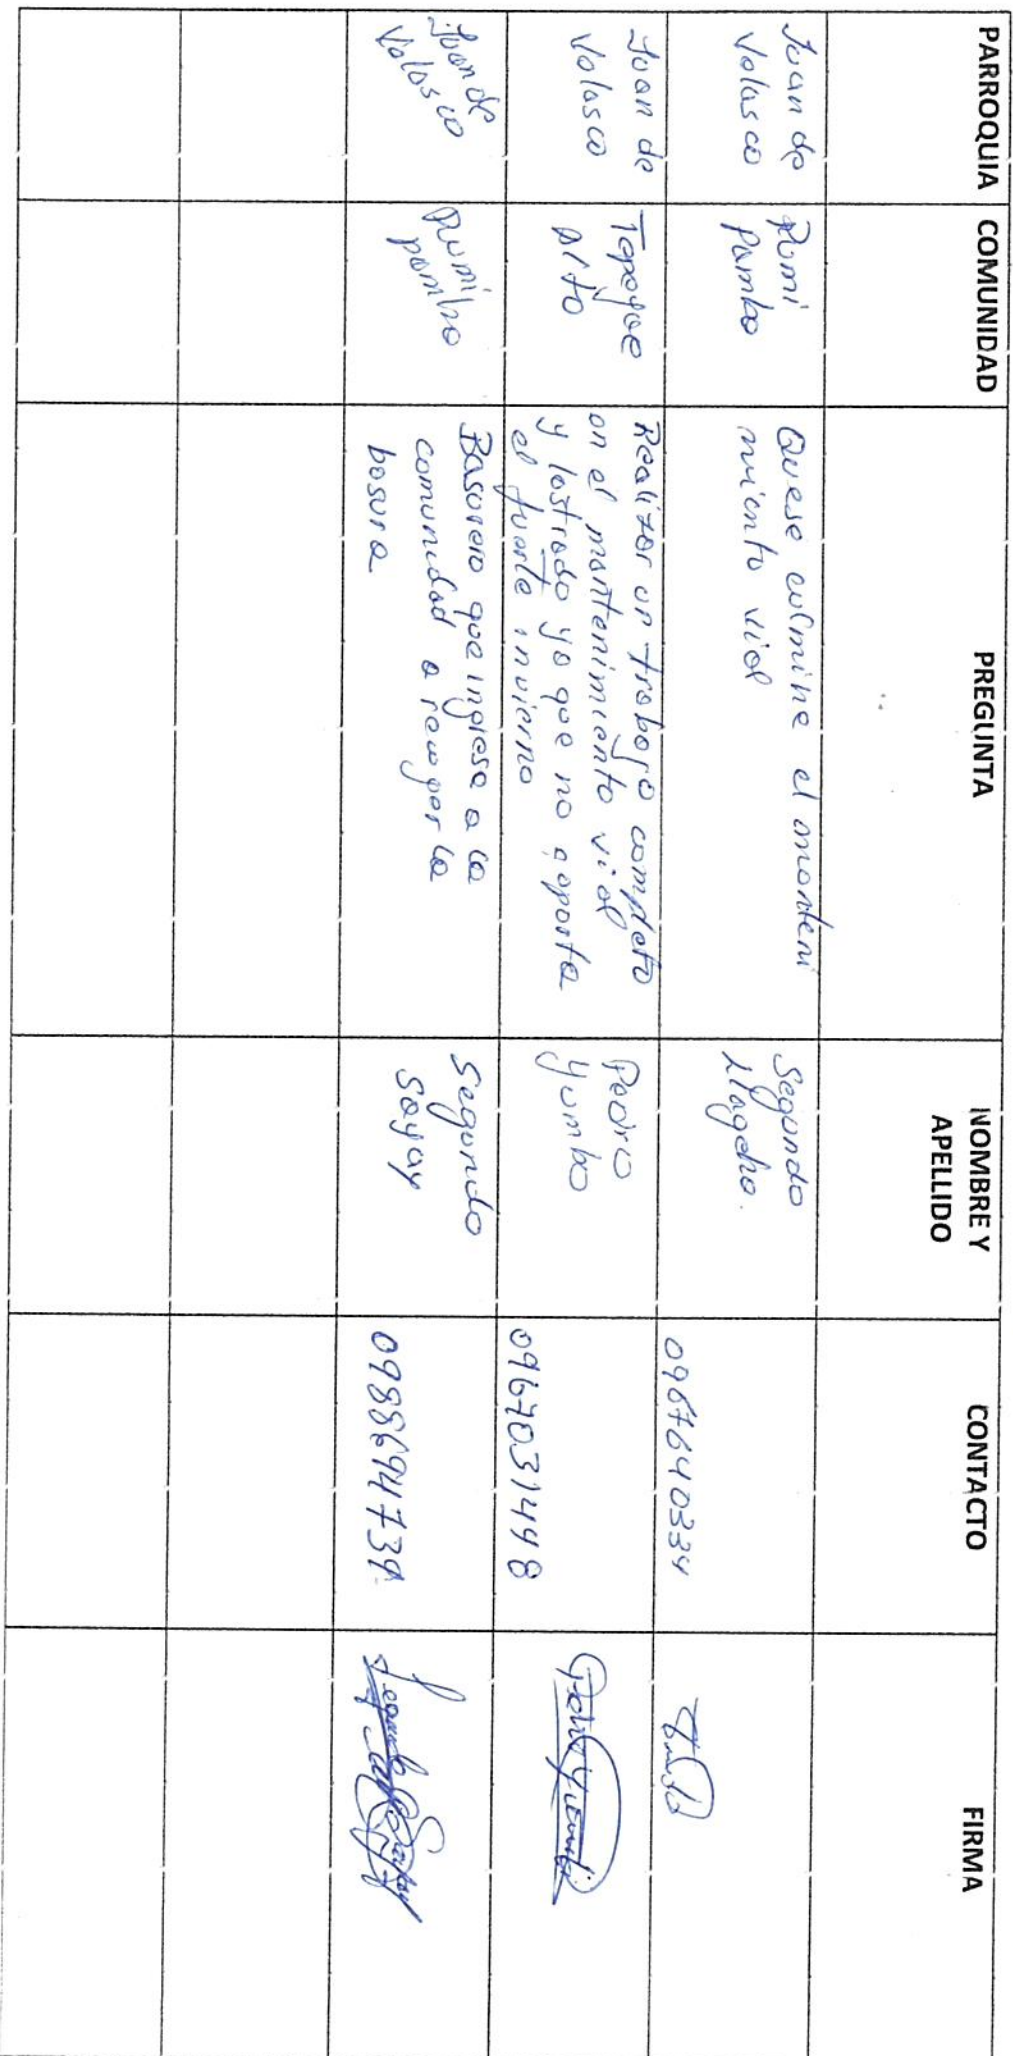 PARROQUIA COMUNIDAD PREGUNTA NOMBRE Y APELLIDO CONTACTO FIRMA
Juan de
Velasco
Rumi
Pamba
Quese culmine el manteni
miento vial
Segundo
0967640334
Juan de
Velasco
Alto
Realizar un trabajo completo
on el mantenimiento vial
y lastrado ya que no aporta
el fuerte invierno
Pedro
Yumbo
0967031448
Juan de
Velasco
Rumi
pamba
Basurero que ingresa a la
comunidad a recoger la
basura
Segundo
Sayay
0988694739